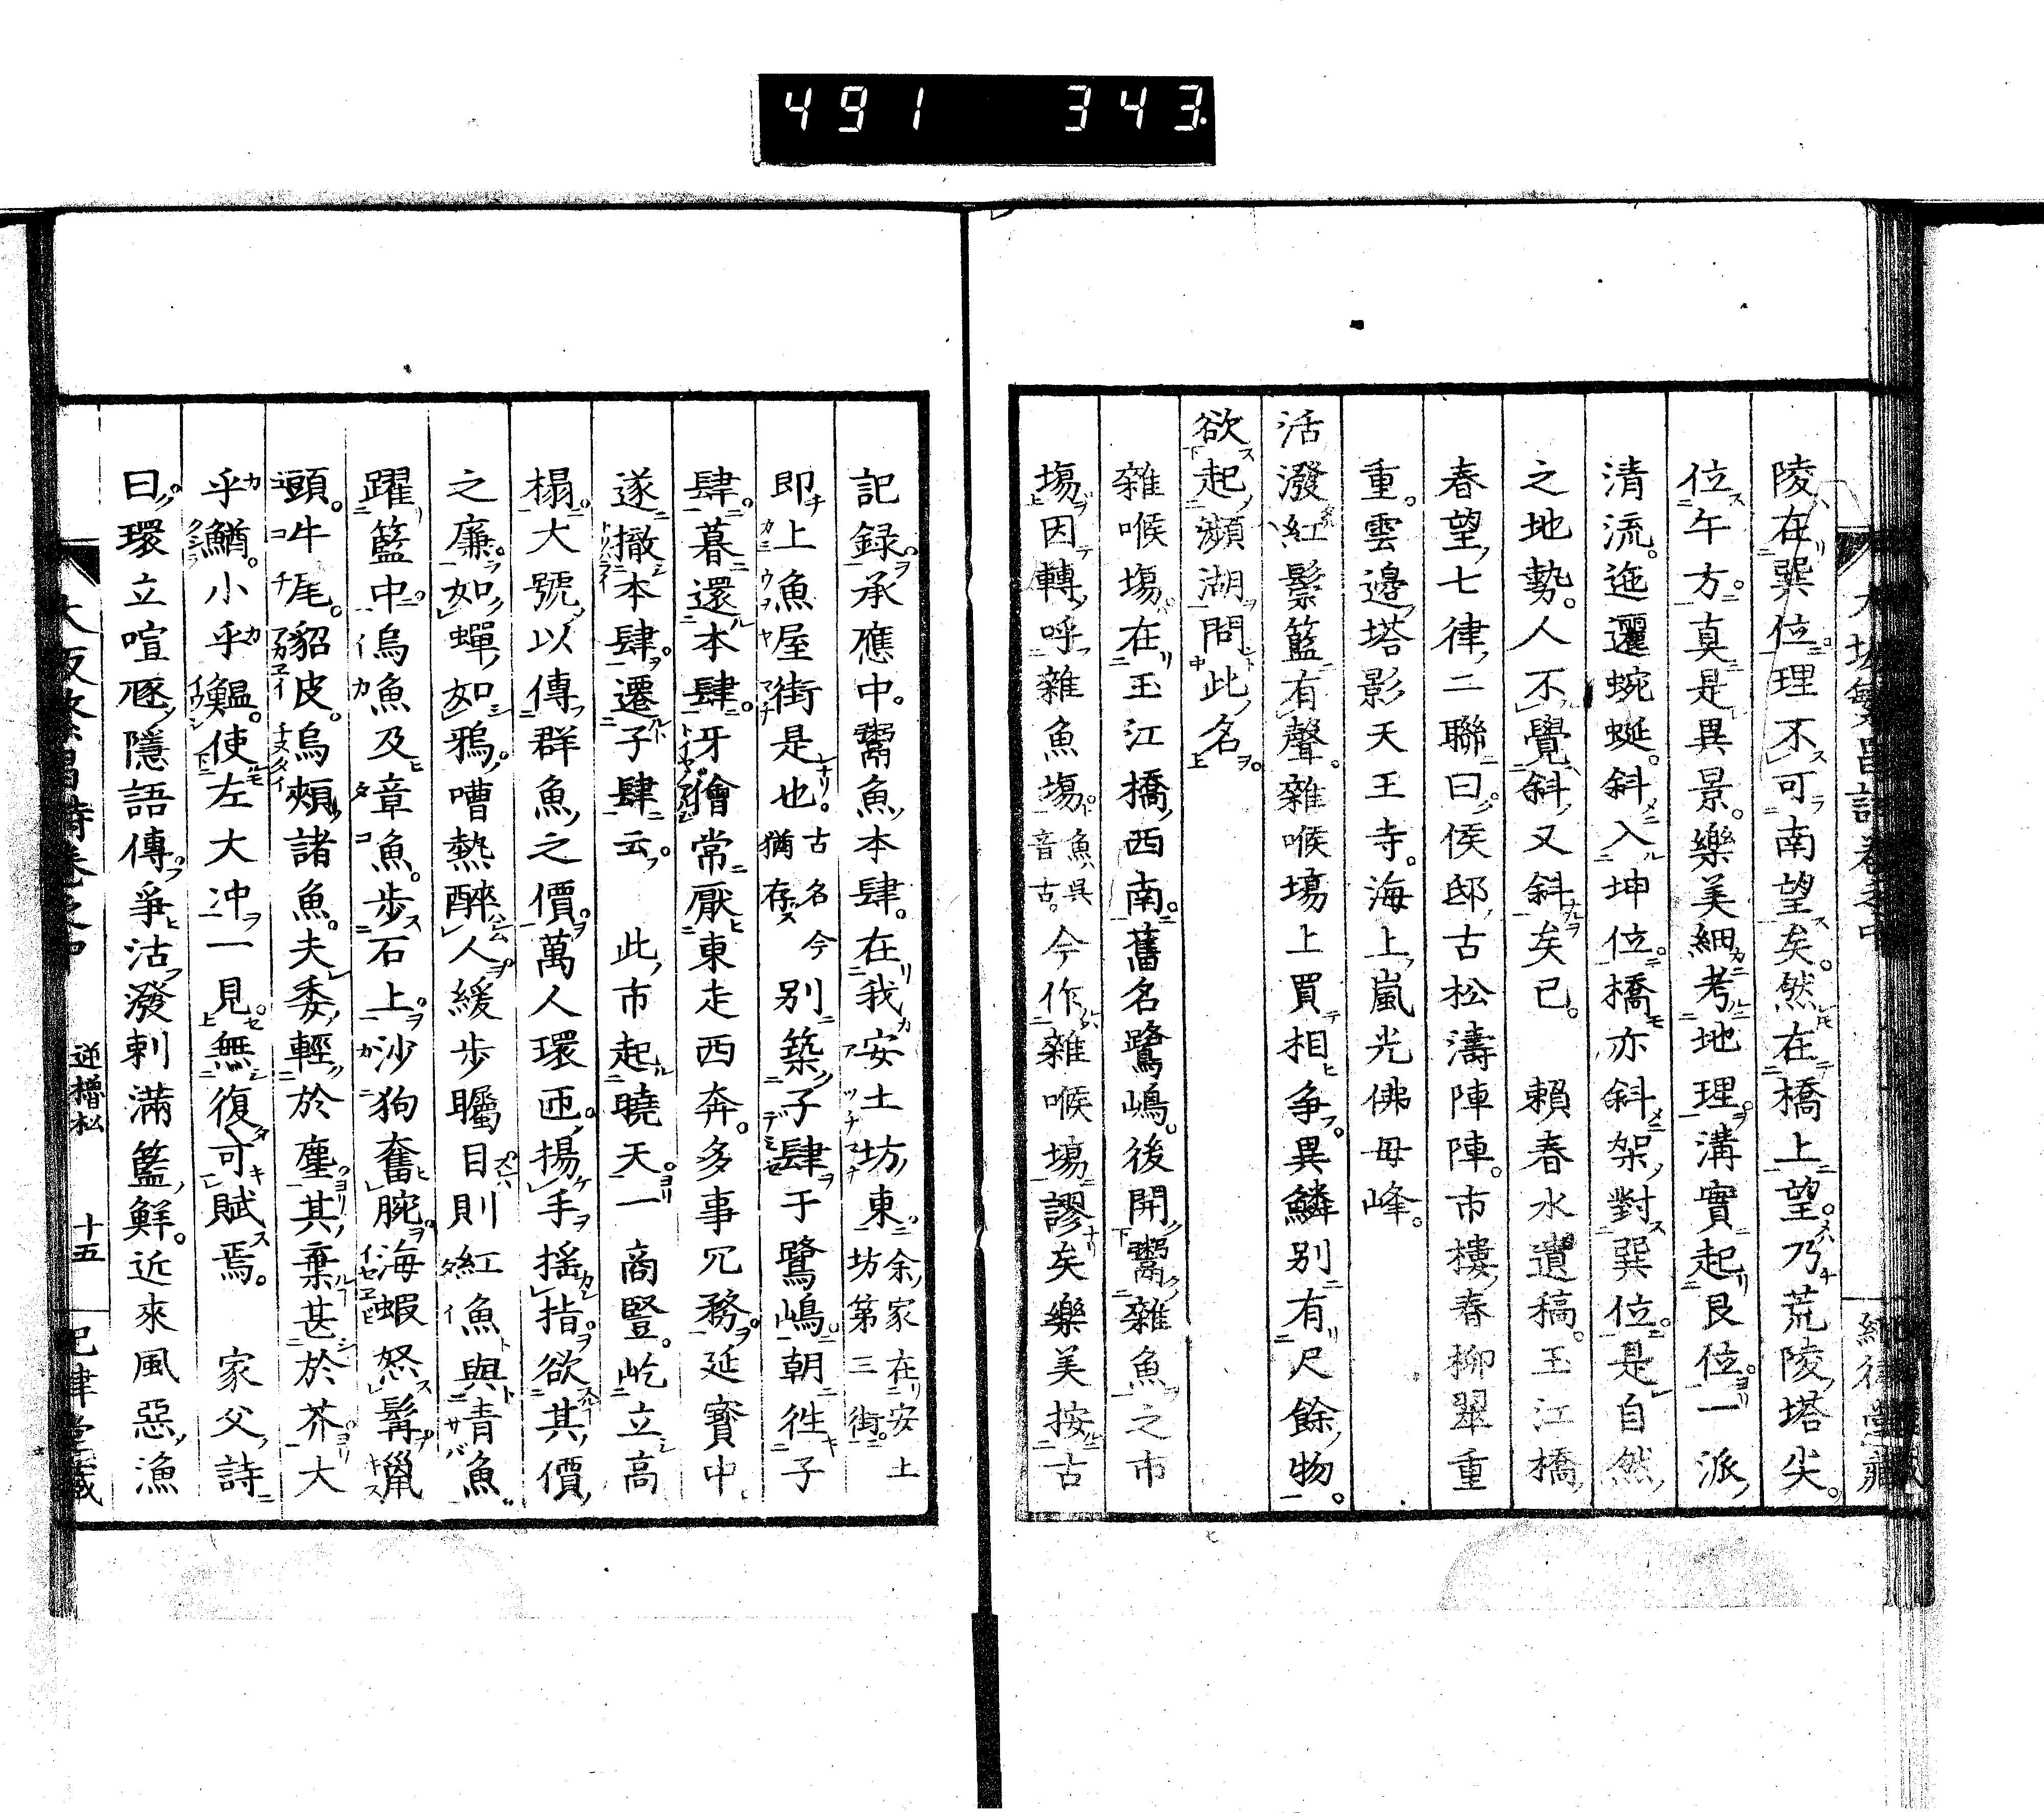 491 343
陵在巽位理不可南望矣。然在橋上望。乃荒陵塔尖。
位午方。真是異景。樂美細考地理溝實起艮位一派
清流。迤邐蜿蜒。斜入坤位。橋亦斜架對巽位。是自然
之地勢。人不覺斜又斜矣已。 賴春水遺稿。玉江橋
春望七律二聯曰。侯邸古松濤陣陣。市樓春柳翠重
重。雲邊塔影天王寺。海上嵐光佛母峰。
活潑紅鬃籃有聲。雜喉塲上買相爭。異鱗別有尺餘物。
欲起瀕湖問此名。
雜喉塲。在玉江橋西南。舊名鷺嶋。後開鬻雜魚之市
塲。因轉呼雜魚塲。魚呉音古。今作雜喉塲謬矣樂美按古
記録。承應中。鬻魚本肆。在我安土坊東余家在安土坊第三街
即上魚屋街是也。古名猶存今別築子肆于鷺嶋。朝徃子
肆。暮還本肆。牙獪常厭東走西奔。多事冗務。延寶中
遂撤本肆。遷子肆云。 此市起曉天。一商豎。屹立高
榻。大號以傳群魚之價。萬人環匝。揚手搖指。欲其價
之廉。如蟬如鴉。嘈熱醉人。緩歩矚目則紅魚與青魚
躍籃中。烏魚及章魚。歩石上。沙狗奮腕。海蝦怒髯。鱲
頭。牛尾。貂皮。烏頰。諸魚。夫委輕於塵。其棄甚於芥。大
乎鰌。小乎鰮。使左大冲一見。無復可賦焉。 家父詩
曰。環立喧豗隱語傳。爭沽潑剌滿籃鮮。近來風惡漁
大坂繁昌詩卷之中 逆櫓松 十五